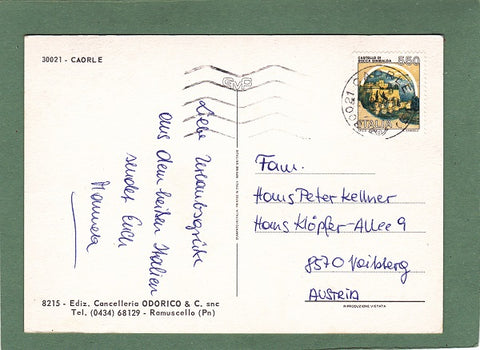 30021 - CAORLE
CASTELLO DI
ROCCA SINIBALDA
550
ITALIA
30021 CAORLE
Liebe Urlaubsgrüße
aus dem heißen Italien
sendet Euch
Manuela
Fam.
Hans Peter Kellner
Hans Klöpfer-Allee 9
8570 Voitsberg
AUSTRIA
8215 - Ediz. Cancelleria ODORICO & C. snc
Tel. (0434) 68129 - Ramuscello (Pn)
RIPRODUZIONE VIETATA